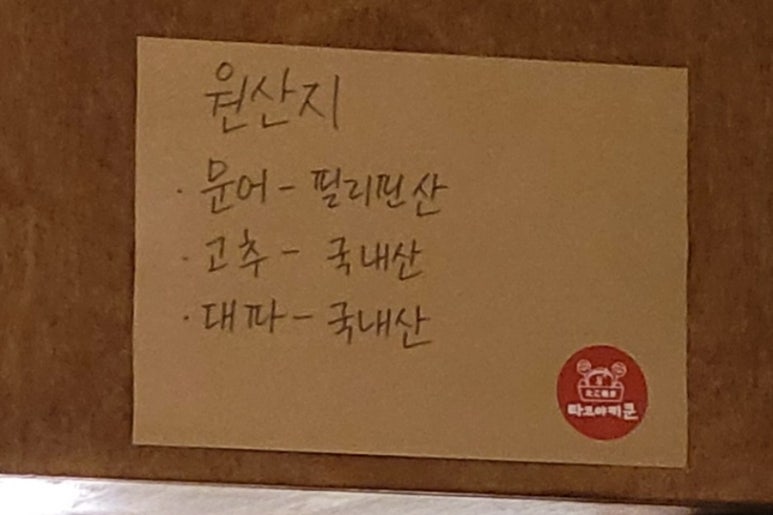 원산지
· 문어 - 필리핀산
· 고추 - 국내산
· 대파 - 국내산
타코야키쿤